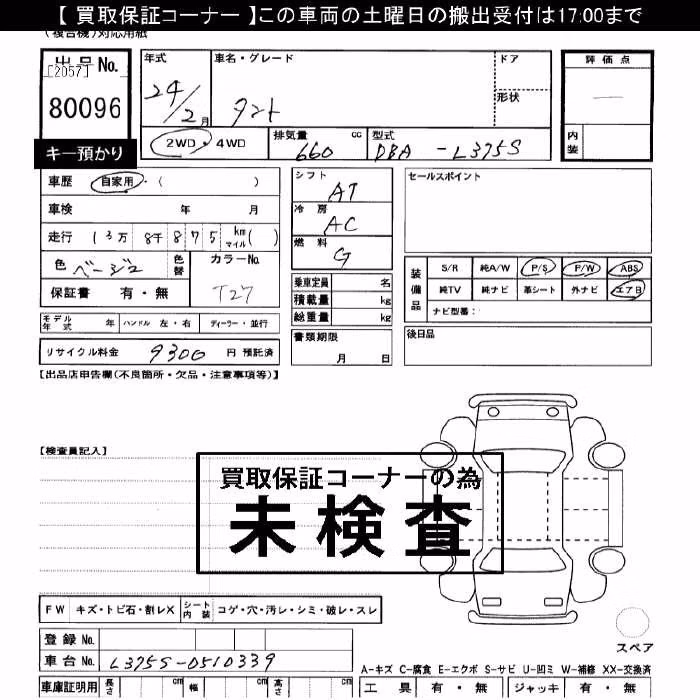 【 買取保証コーナー 】この車両の土曜日の搬出受付は17:00まで
(複合機)対応用紙
出品No.
[2057]
80096
キー預かり
年式 24/2月
車名・グレード タント
ドア
形状
評価点 —
内装
2WD・4WD
排気量 660 cc
型式 DBA -L375S
車歴 自家用・( )
車検 年 月
走行 13万 8千 875 km マイル ( )
色 ベージュ 色替
カラーNo. T27
保証書 有・無
シフト AT
冷房 AC
燃料 G
乗車定員 名
積載量 kg
総重量 kg
書類期限 月 日
セールスポイント
装備品
S/R 純A/W P/S P/W ABS
純TV 純ナビ 革シート 外ナビ エアB
ナビ型番:
後日品
モデル年式 年 ハンドル 左・右 ディーラー・並行
リサイクル料金 9300 円 預託済
【出品店申告欄(不良箇所・欠品・注意事項等)】
【検査員記入】
買取保証コーナーの為
未検査
FW キズ・トビ石・割レX シート内装 コゲ・穴・汚レ・シミ・破レ・スレ
登録No.
車台No. L375S-0510339
スペア
A-キズ C-腐食 E-エクボ S-サビ U-凹ミ W-補修 XX-交換済
車庫証明用 長さ cm 幅 cm 高さ cm
工具 有・無 ジャッキ 有・無